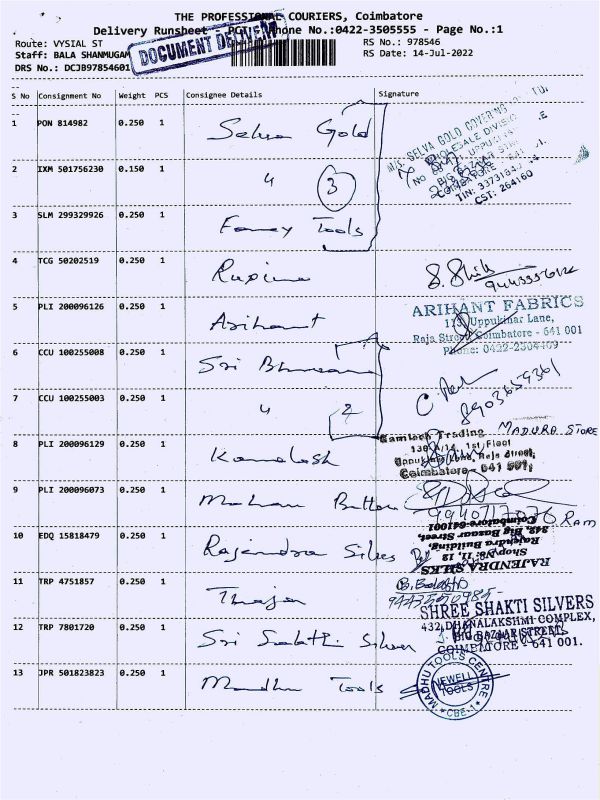 THE PROFESSIONAL COURIERS, Coimbatore
Delivery Runsheet No.:0422-3505555 - Page No.:1
DOCUMENT
Route: VYSIAL ST
RS No.: 978546
Staff: BALA SHANMUGAM
RS Date: 14-Jul-2022
DRS No.: DCJB97854601
S No Consignment No Weight PCS Consignee Details Signature
1 PON 814982 0.250 1 Selva Gold
M/S. SELVA GOLD COVERING
WHOLESALE DIVISION
BIG BAZAAR ST
COIMBATORE
CST: 264160
2 IXM 501756230 0.150 1 " 3
3 SLM 299329926 0.250 1 Fancy Tools
4 TCG 50202519 0.250 1
5 PLI 200096126 0.250 1 Arihant
ARIHANT FABRICS
113, Uppukinar Lane,
Raja Street, Coimbatore - 641 001
Phone: 0422-2304409
6 CCU 100255008 0.250 1 Sri
8903659361
7 CCU 100255003 0.250 1 " 2
MADURA STORE
8 PLI 200096129 0.250 1 Kamalesh
Kamlesh Trading
1st Floor
Uppukinar Lane, Raja Street,
Coimbatore - 641 001,
9 PLI 200096073 0.250 1 Mohan Button
RAM
10 EDQ 15818479 0.250 1 Rajendra Silks
RAJENDRA SILKS
Shop No: 11, 12
Rajendra Building,
342, Big Bazaar Street,
Coimbatore-641001
11 TRP 4751857 0.250 1
12 TRP 7801720 0.250 1 Sri Sakthi Silver
SHREE SHAKTI SILVERS
432, DHANALAKSHMI COMPLEX,
BIG BAZAAR STREET,
COIMBATORE - 641 001.
13 JPR 501823823 0.250 1 Madhu Tools
MADHU TOOLS CENTRE
NEWELL TOOLS
CBE-1